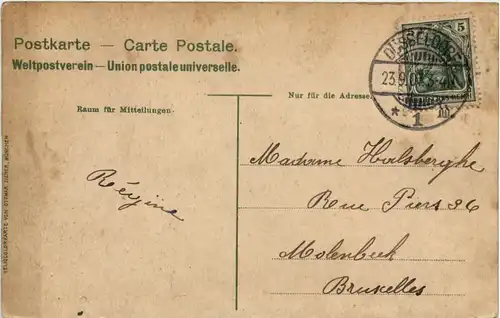 Postkarte — Carte Postale.
Weltpostverein — Union postale universelle.
Raum für Mitteilungen.
Nur für die Adresse.
5
DÜSSELDORF
23.9.0
* 1
Madame Halsberghe
Régine
Rue Piers 36
Molenbeek
Bruxelles